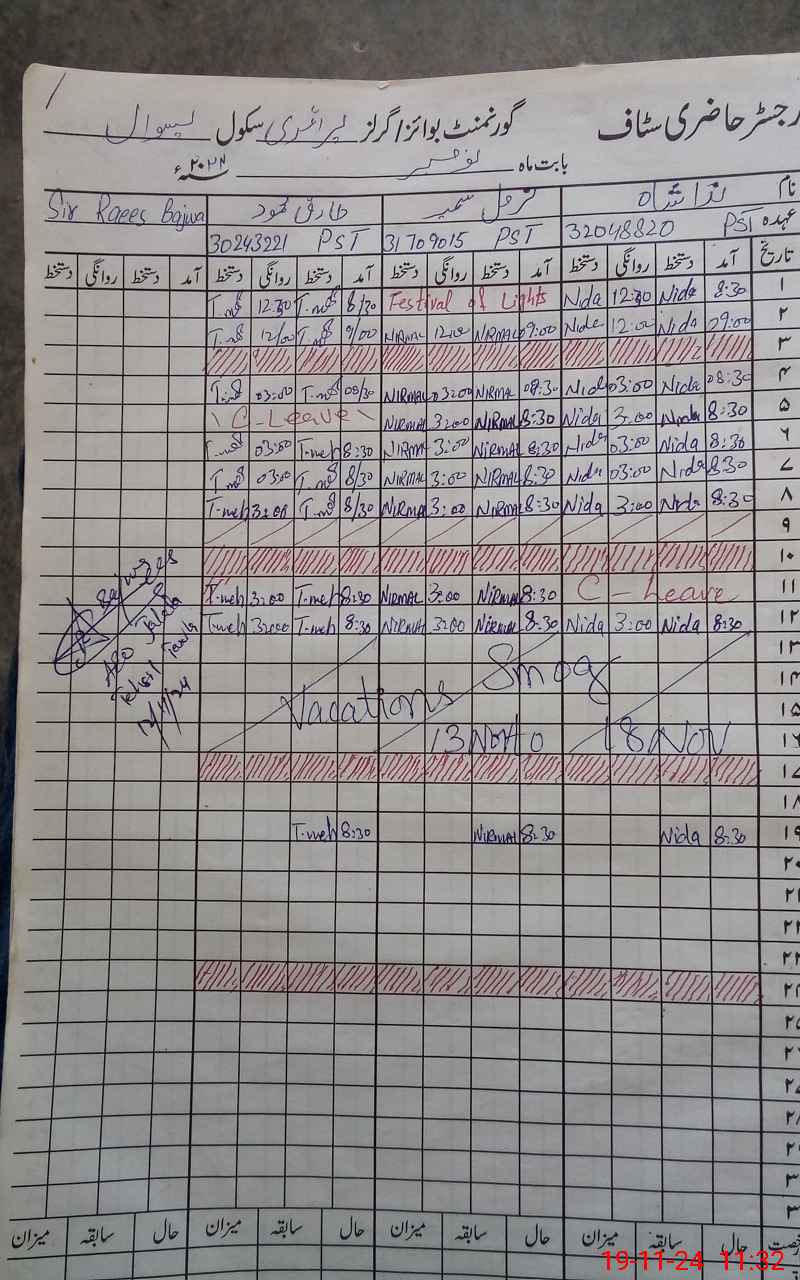 رجسٹر حاضری سٹاف گورنمنٹ بوائز/گرلز پرائمری سکول لیسوال
بابت ماہ نومبر ۲۰۲۴ء
نام ندا شاہ نرمل سمیر طارق محمود Sir Raees Bajwa
عہدہ PST 32048820 PST 31709015 PST 30243221
تاریخ آمد دستخط روانگی دستخط آمد دستخط روانگی دستخط آمد دستخط روانگی دستخط آمد دستخط روانگی دستخط
۱ 8:30 Nida 12:30 Nida Festival of Lights 8/30 12:30
۲ 09:00 Nida 12:00 Nida 09:00 NIRMAL 12:00 NIRMAL 9/00 12/00
۳
۴ 08:30 Nida 03:00 Nida 08:30 NIRMAL 03:00 NIRMAL 08/30 03:00
۵ 8:30 Nida 3:00 Nida 8:30 NIRMAL 3:00 NIRMAL C-Leave
۶ 8:30 Nida 03:00 Nida 8:30 NIRMAL 3:00 NIRMAL 8:30 T-meh 03:00
۷ 8:30 Nida 03:00 Nida 8:30 NIRMAL 3:00 NIRMAL 8/30 03:00
۸ 8:30 Nida 3:00 Nida 8:30 NIRMAL 3:00 NIRMAL 8/30 3:00 T-meh
۹
۱۰
۱۱ C-Leave 8:30 NIRMAL 3:00 NIRMAL 8:30 T-meh 3:00 T-meh
۱۲ 8:30 Nida 3:00 Nida 8:30 NIRMAL 3:00 NIRMAL 8:30 T-meh 3:00 T-meh
Bajwa
AEO
Tehsil
12/11/24
۱۳
۱۴ Smog
۱۵ Vacations
۱۶ 13 Nov to 18 NOV
۱۷
۱۸
۱۹ 8:30 Nida 8:30 NIRMAL 8:30 T-meh
۲۰
۲۱
۲۲
۲۳
۲۴
۲۵
۲۶
۲۷
۲۸
۲۹
۳
۳
حال سابقہ میزان حال سابقہ میزان حال سابقہ میزان حال سابقہ میزان
19-11-24 11:32